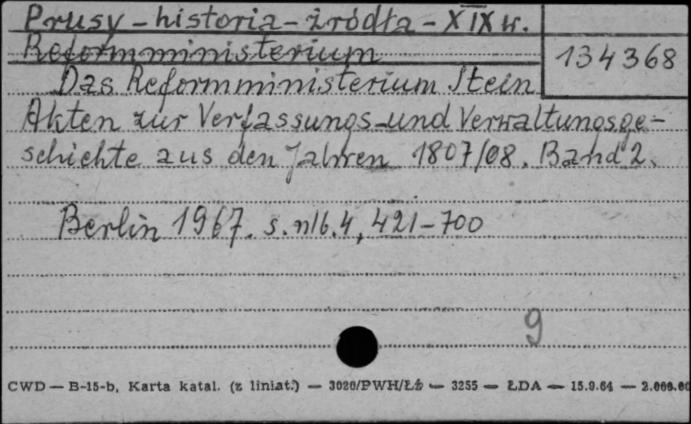 Prusy - historia - źródła - XIX w.
Reformministerium
134368
Das Reformministerium Stein
Akten zur Verfassungs-und Verwaltungsge-
schichte aus den Jahren 1807/08. Band 2.
Berlin 1967. s. nlb. 4, 421-700
9
CWD — B-15-b, Karta katal. (z liniat.) — 3020/PWH/Łb — 3255 — ŁDA — 15.9.64 — 2.000.00